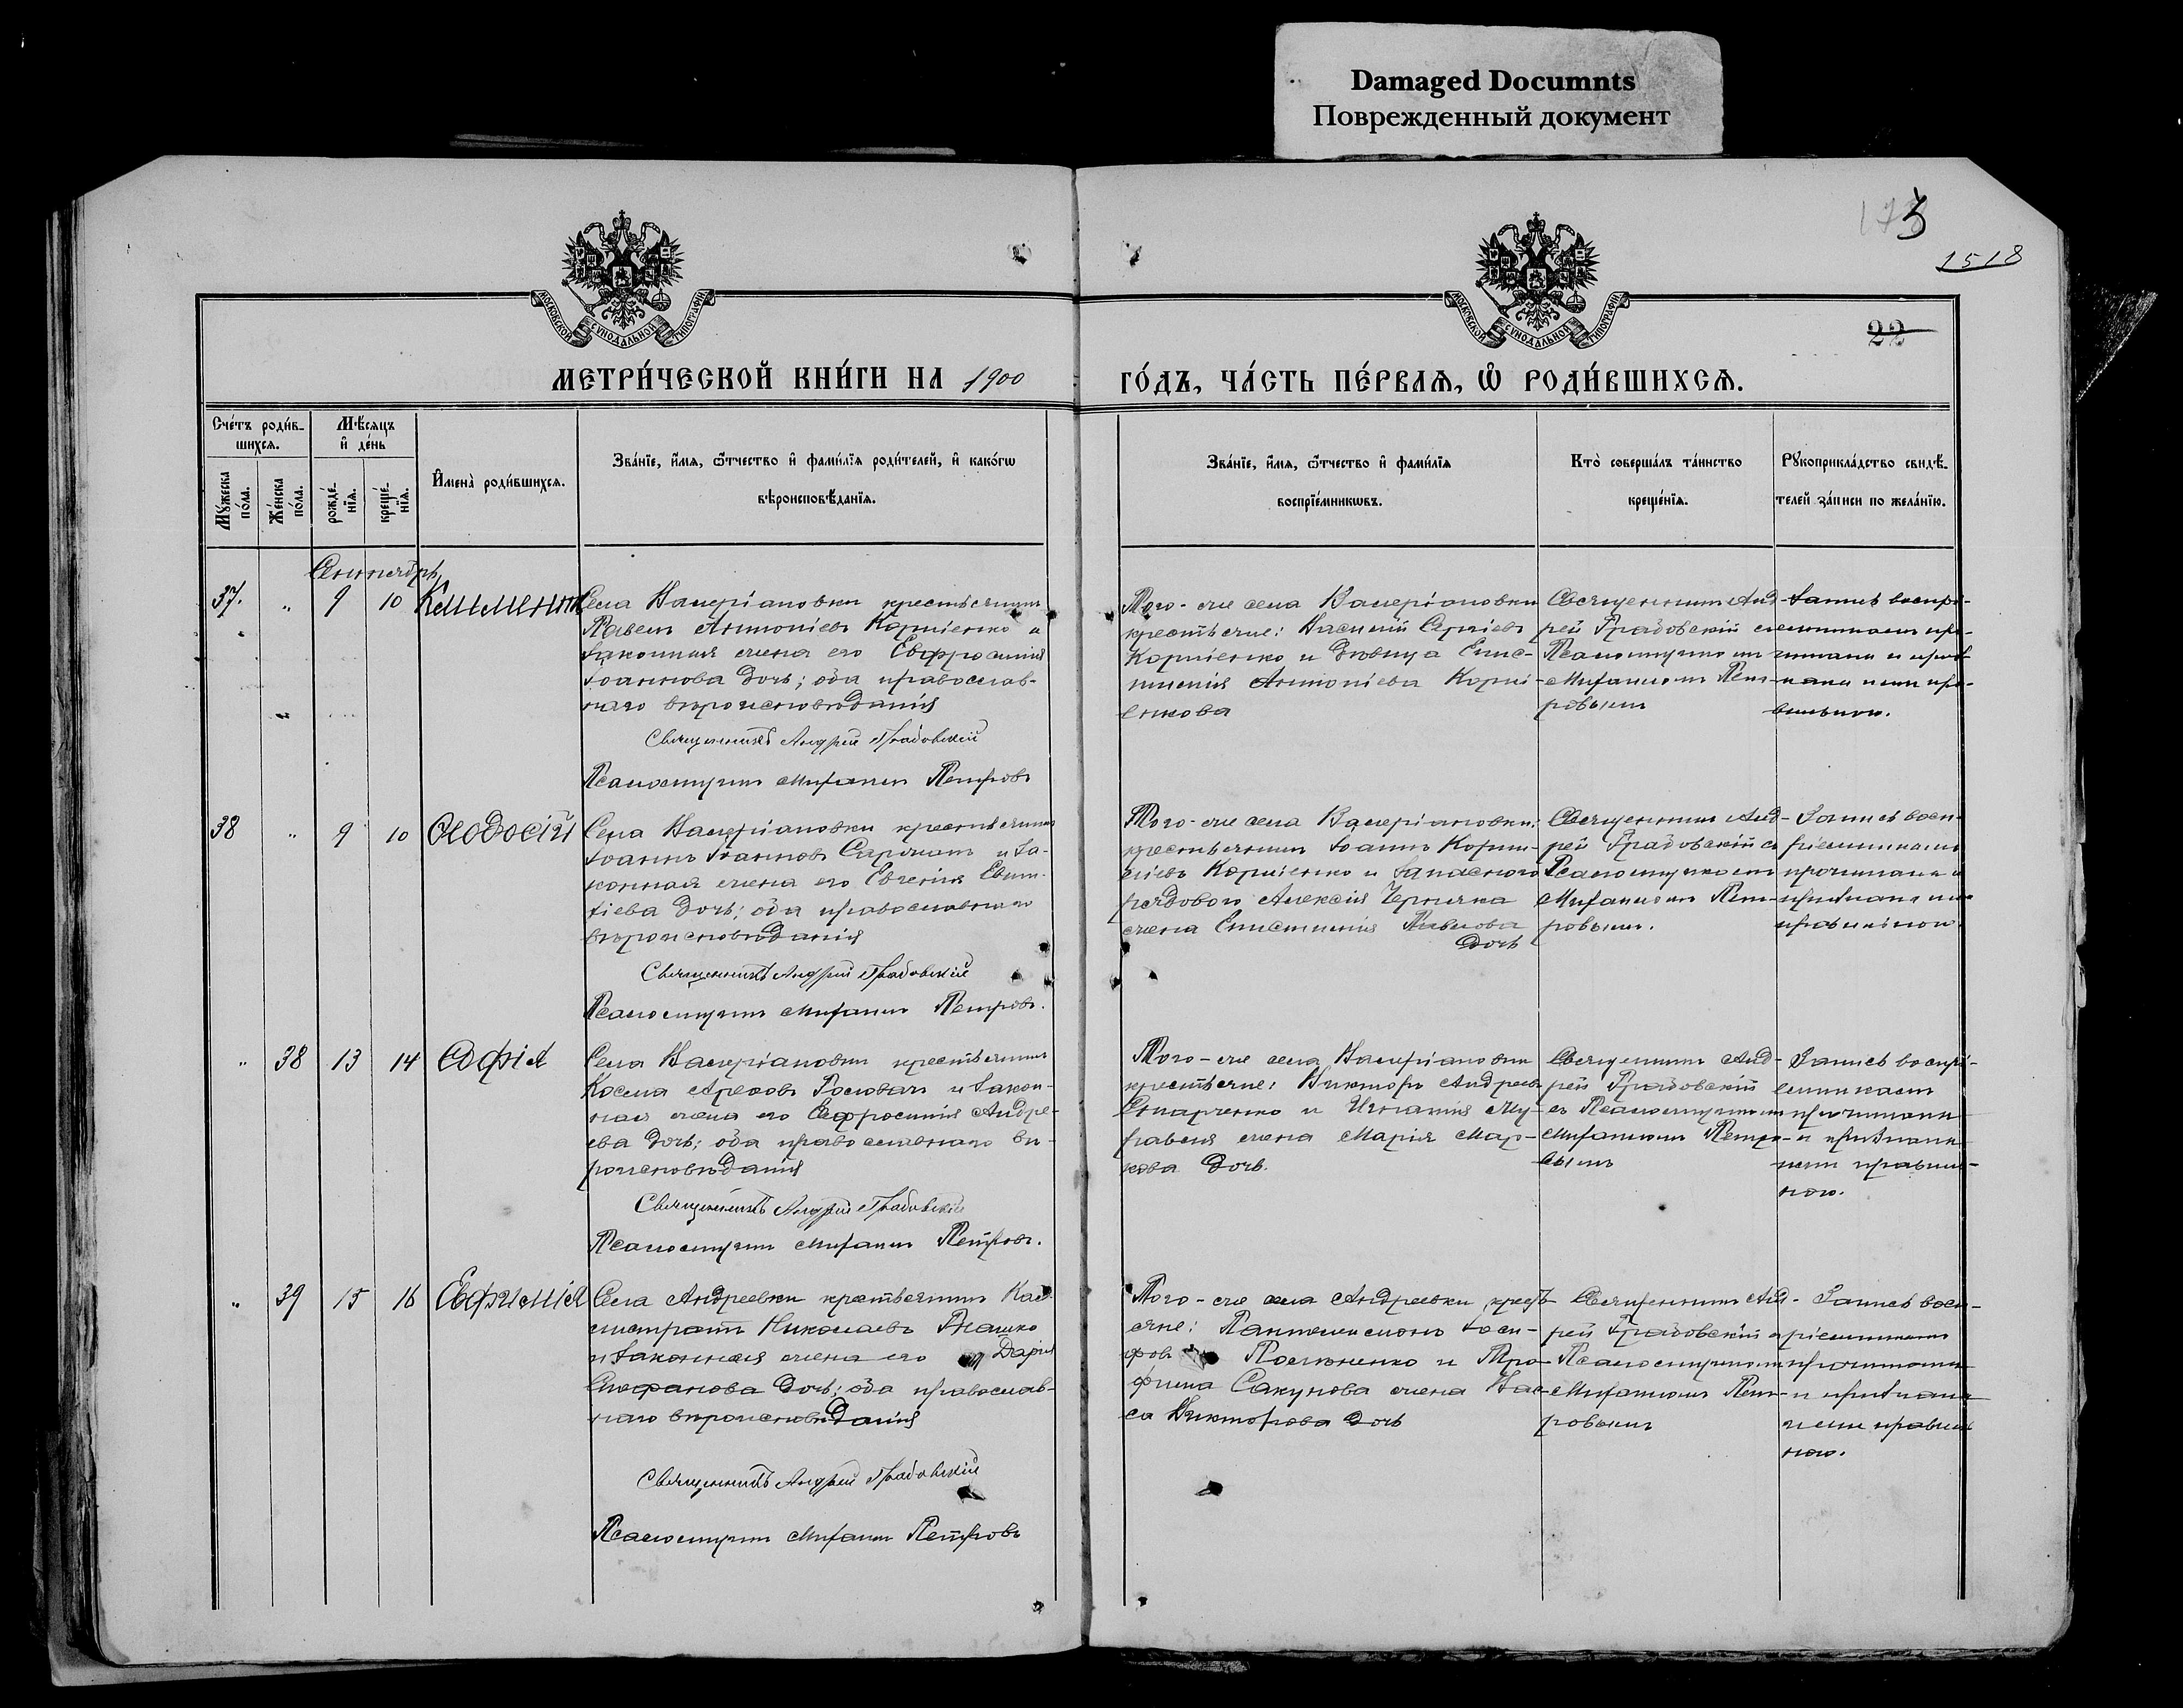 Damaged Documnts
Поврежденный документ
173
1518
22
МОСКОВСКОЙ СѴНОДАЛЬНОЙ ТИПОГРАФІИ
МОСКОВСКОЙ СѴНОДАЛЬНОЙ ТИПОГРАФІИ
МЕТРИ́ЧЕСКОЙ КНИ́ГИ НА 1900
ГО́ДЪ, ЧА́СТЬ ПЕ́РВАѦ, Ѡ҆ РОДИ́ВШИХСѦ.
Сче́тъ роди́в-
шихсѧ.
Мꙋ́жеска по́ла.
Же́нска по́ла.
Мѣ́сѧцъ
и҆ де́нь
рожде́-
нїѧ.
креще́-
нїѧ.
И҆мена̀ роди́вшихсѧ.
Зва́нїе, и҆́мѧ, ѻ҆́тчество и҆ фами́лїѧ роди́телей, и҆ како́гѡ
вѣроисповѣ́данїѧ.
Зва́нїе, и҆́мѧ, ѻ҆́тчество и҆ фами́лїѧ
воспрїе́мникѡвъ.
Кто̀ соверша́лъ та́инство
креще́нїѧ.
Рꙋкоприкла́дство свидѣ́-
телей за́писи по жела́нїю.
Сентябрь
37. " 9 10 Климентъ
Села Валеріановки крестьянинъ
Павелъ Антоніевъ Корніенко и
законная жена его Евфросинія
Іоаннова дочь; оба православ-
наго вѣроисповѣданія
Священникъ Андрей Грабовскій
Псаломщикъ Михаилъ Петровъ
Того-же села Валеріановки
крестьяне: Василій Сергіевъ
Корніенко и дѣвица Епис-
тимія Антоніева Корні-
енкова
Священникъ Анд-
рей Грабовскій съ
Псаломщикомъ
Михаиломъ Пет-
ровымъ
Запись воспрі-
емникамъ про-
читана и приз-
нана ими пра-
вильною.
38 " 9 10 Ѳеодосій
Села Валеріановки крестьянинъ
Іоаннъ Іоанновъ и за-
конная жена его Евгенія
дочь; оба православнаго
вѣроисповѣданія
Священникъ Андрей Грабовскій
Псаломщикъ Михаилъ Петровъ.
Того-же села Валеріановки:
крестьянинъ Іоаннъ Корни-
ліевъ Корніенко и запаснаго
рядового Алексія Черняка
жена Епистимія Павлова
дочь
Священникъ Анд-
рей Грабовскій съ
Псаломщикомъ
Михаиломъ Пет-
ровымъ.
Запись восп-
ріемникамъ
прочитана и
признана ими
правильною.
" 38 13 14 Софія
Села Валеріановки крестьянинъ
Косма и закон-
ная жена его Евфросинія Андре-
ева дочь; оба православнаго вѣ-
роисповѣданія
Священникъ Андрей Грабовскій
Псаломщикъ Михаилъ Петровъ.
Того-же села Валеріановки
крестьяне: Викторъ Андреевъ
и Игнатія Му-
равья жена Марія Мар-
кова дочь.
Священникъ Анд-
рей Грабовскій
съ Псаломщикомъ
Михаиломъ Петро-
вымъ
Запись воспрі-
емникамъ
прочитана
и признана
ими правиль-
ною.
" 39 15 16 Евфимія
Села Андреевки крестьянинъ Кал-
листратъ Николаевъ
и законная жена его Дарія
Стефанова дочь; оба православ-
наго вѣроисповѣданія
Священникъ Андрей Грабовскій
Псаломщикъ Михаилъ Петровъ
Того-же села Андреевки кресть-
яне: Пантелеимонъ Іоси-
фовъ и Тро-
фима Сакунова жена Вас-
са Викторова дочь
Священникъ Анд-
рей Грабовскій съ
Псаломщикомъ
Михаиломъ Пет-
ровымъ
Запись восп-
ріемникамъ
прочитана
и признана
ими правиль-
ною.